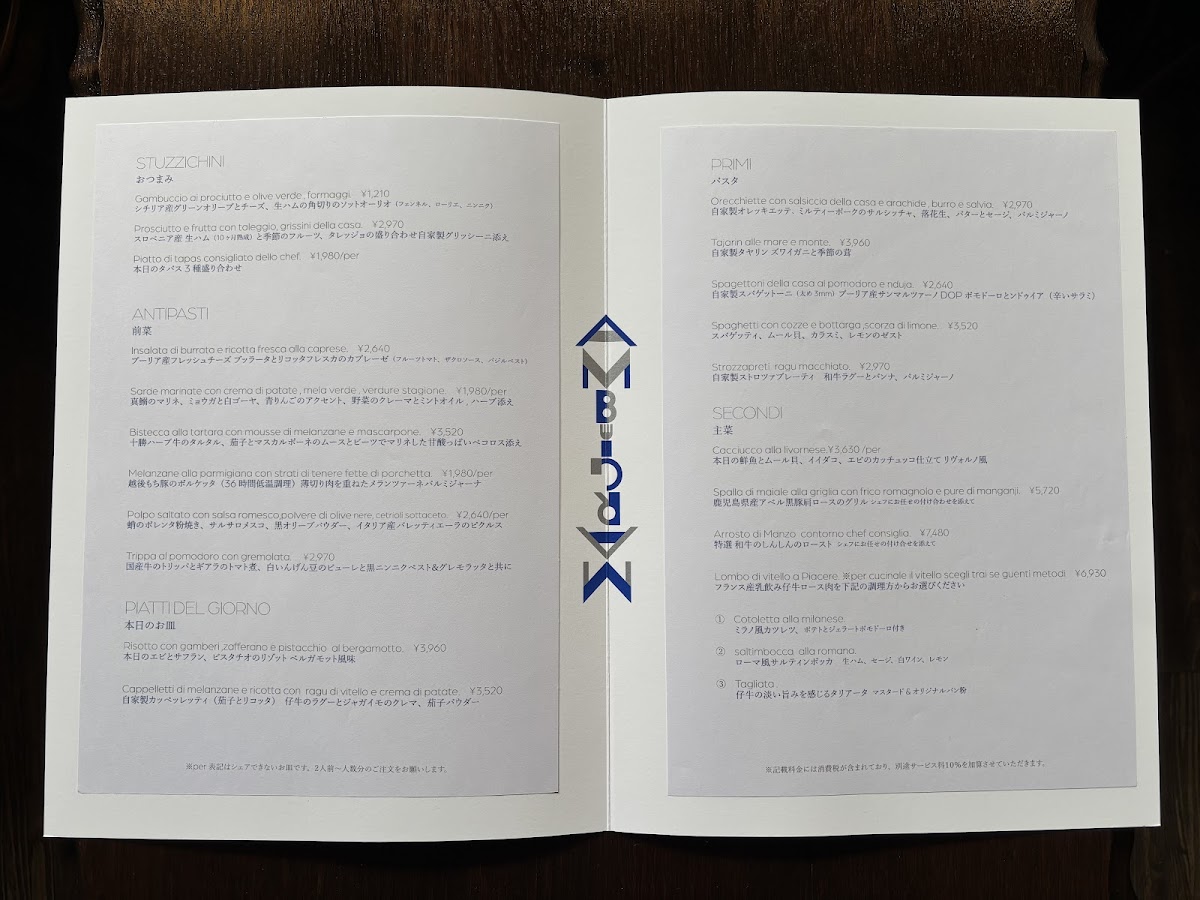 STUZZICHINI
おつまみ
Gambuccio ai prociutto e olive verde , formaggi. ¥1,210
シチリア産グリーンオリーブとチーズ、生ハムの角切りのソットオーリオ（フェンネル、ローリエ、ニンニク）
Prosciutto e frutta con taleggio, grissini della casa. ¥2,970
スロベニア産 生ハム（10ヶ月熟成）と季節のフルーツ、タレッジョの盛り合わせ自家製グリッシーニ添え
Piatto di tapas consigliato dello chef. ¥1,980/per
本日のタパス 3 種盛り合わせ
ANTIPASTI
前菜
Insalata di burrata e ricotta fresca alla caprese. ¥2,640
プーリア産フレッシュチーズ ブッラータとリコッタフレスカのカプレーゼ（フルーツトマト、ザクロソース、バジルペスト）
Sarde marinate con crema di patate , mela verde , verdure stagione. ¥1,980/per
真鰯のマリネ、ミョウガと白ゴーヤ、青りんごのアクセント、野菜のクレーマとミントオイル , ハーブ添え
Bistecca alla tartara con mousse di melanzane e mascarpone. ¥3,520
十勝ハーブ牛のタルタル、茄子とマスカルポーネのムースとビーツでマリネした甘酸っぱいペコロス添え
Melanzane alla parmigiana con strati di tenere fette di porchetta. ¥1,980/per
越後もち豚のポルケッタ（36 時間低温調理）薄切り肉を重ねたメランツァーネパルミジャーナ
Polpo saltato con salsa romesco,polvere di olive nere, cetrioli sottaceto. ¥2,640/per
蛸のポレンタ粉焼き、サルサロメスコ、黒オリーブパウダー、イタリア産バレッティエーラのピクルス
Trippa al pomodoro con gremolata. ¥2,970
国産牛のトリッパとギアラのトマト煮、白いんげん豆のピューレと黒ニンニクペスト&グレモラッタと共に
PIATTI DEL GIORNO
本日のお皿
Risotto con gamberi ,zafferano e pistacchio al bergamotto. ¥3,960
本日のエビとサフラン、ピスタチオのリゾット ベルガモット風味
Cappelletti di melanzane e ricotta con ragu di vitello e crema di patate. ¥3,520
自家製カッペッレッティ（茄子とリコッタ） 仔牛のラグーとジャガイモのクレマ、茄子パウダー
※per 表記はシェアできないお皿です。2人前〜人数分のご注文をお願いします。
PRIMI
パスタ
Orecchiette con salsiccia della casa e arachide , burro e salvia. ¥2,970
自家製オレッキエッテ , ミルティーポークのサルシッチャ、落花生、バターとセージ、パルミジャーノ
Tajarin alle mare e monte. ¥3,960
自家製タヤリン ズワイガニと季節の茸
Spagettoni della casa al pomodoro e nduja. ¥2,640
自家製スパゲットーニ（太め 3mm）プーリア産サンマルツァーノ DOP ポモドーロとンドゥイア（辛いサラミ）
Spaghetti con cozze e bottarga ,scorza di limone. ¥3,520
スパゲッティ、ムール貝、カラスミ、レモンのゼスト
Strozzapreti ragu macchiato. ¥2,970
自家製ストロツァプレーティ 和牛ラグーとパンナ、パルミジャーノ
SECONDI
主菜
Cacciucco alla livornese.¥3,630 /per
本日の鮮魚とムール貝、イイダコ、エビのカッチュッコ仕立て リヴォルノ風
Spallo di maiale alla griglia con frico romagnolo e pure di manganji. ¥5,720
鹿児島県産アベル黒豚肩ロースのグリル シェフにお任せの付け合わせを添えて
Arrosto di Manzo contorno chef consiglio. ¥7,480
特選 和牛のしんしんのロースト シェフにお任せの付け合せを添えて
Lombo di vitello a Piacere ※per cucinale il vitello scegli trai se guenti metodi ¥6,930
フランス産乳飲み仔牛ロース肉を下記の調理方からお選びください
① Cotoletta alla milanese.
ミラノ風カツレツ、ポテトとジェラートポモドーロ付き
② saltimbocca alla romana.
ローマ風サルティンボッカ 生ハム、セージ、白ワイン、レモン
③ Tagliata
仔牛の淡い旨みを感じるタリアータ マスタード＆オリジナルパン粉
※記載料金には消費税が含まれており、別途サービス料10%を加算させていただきます。